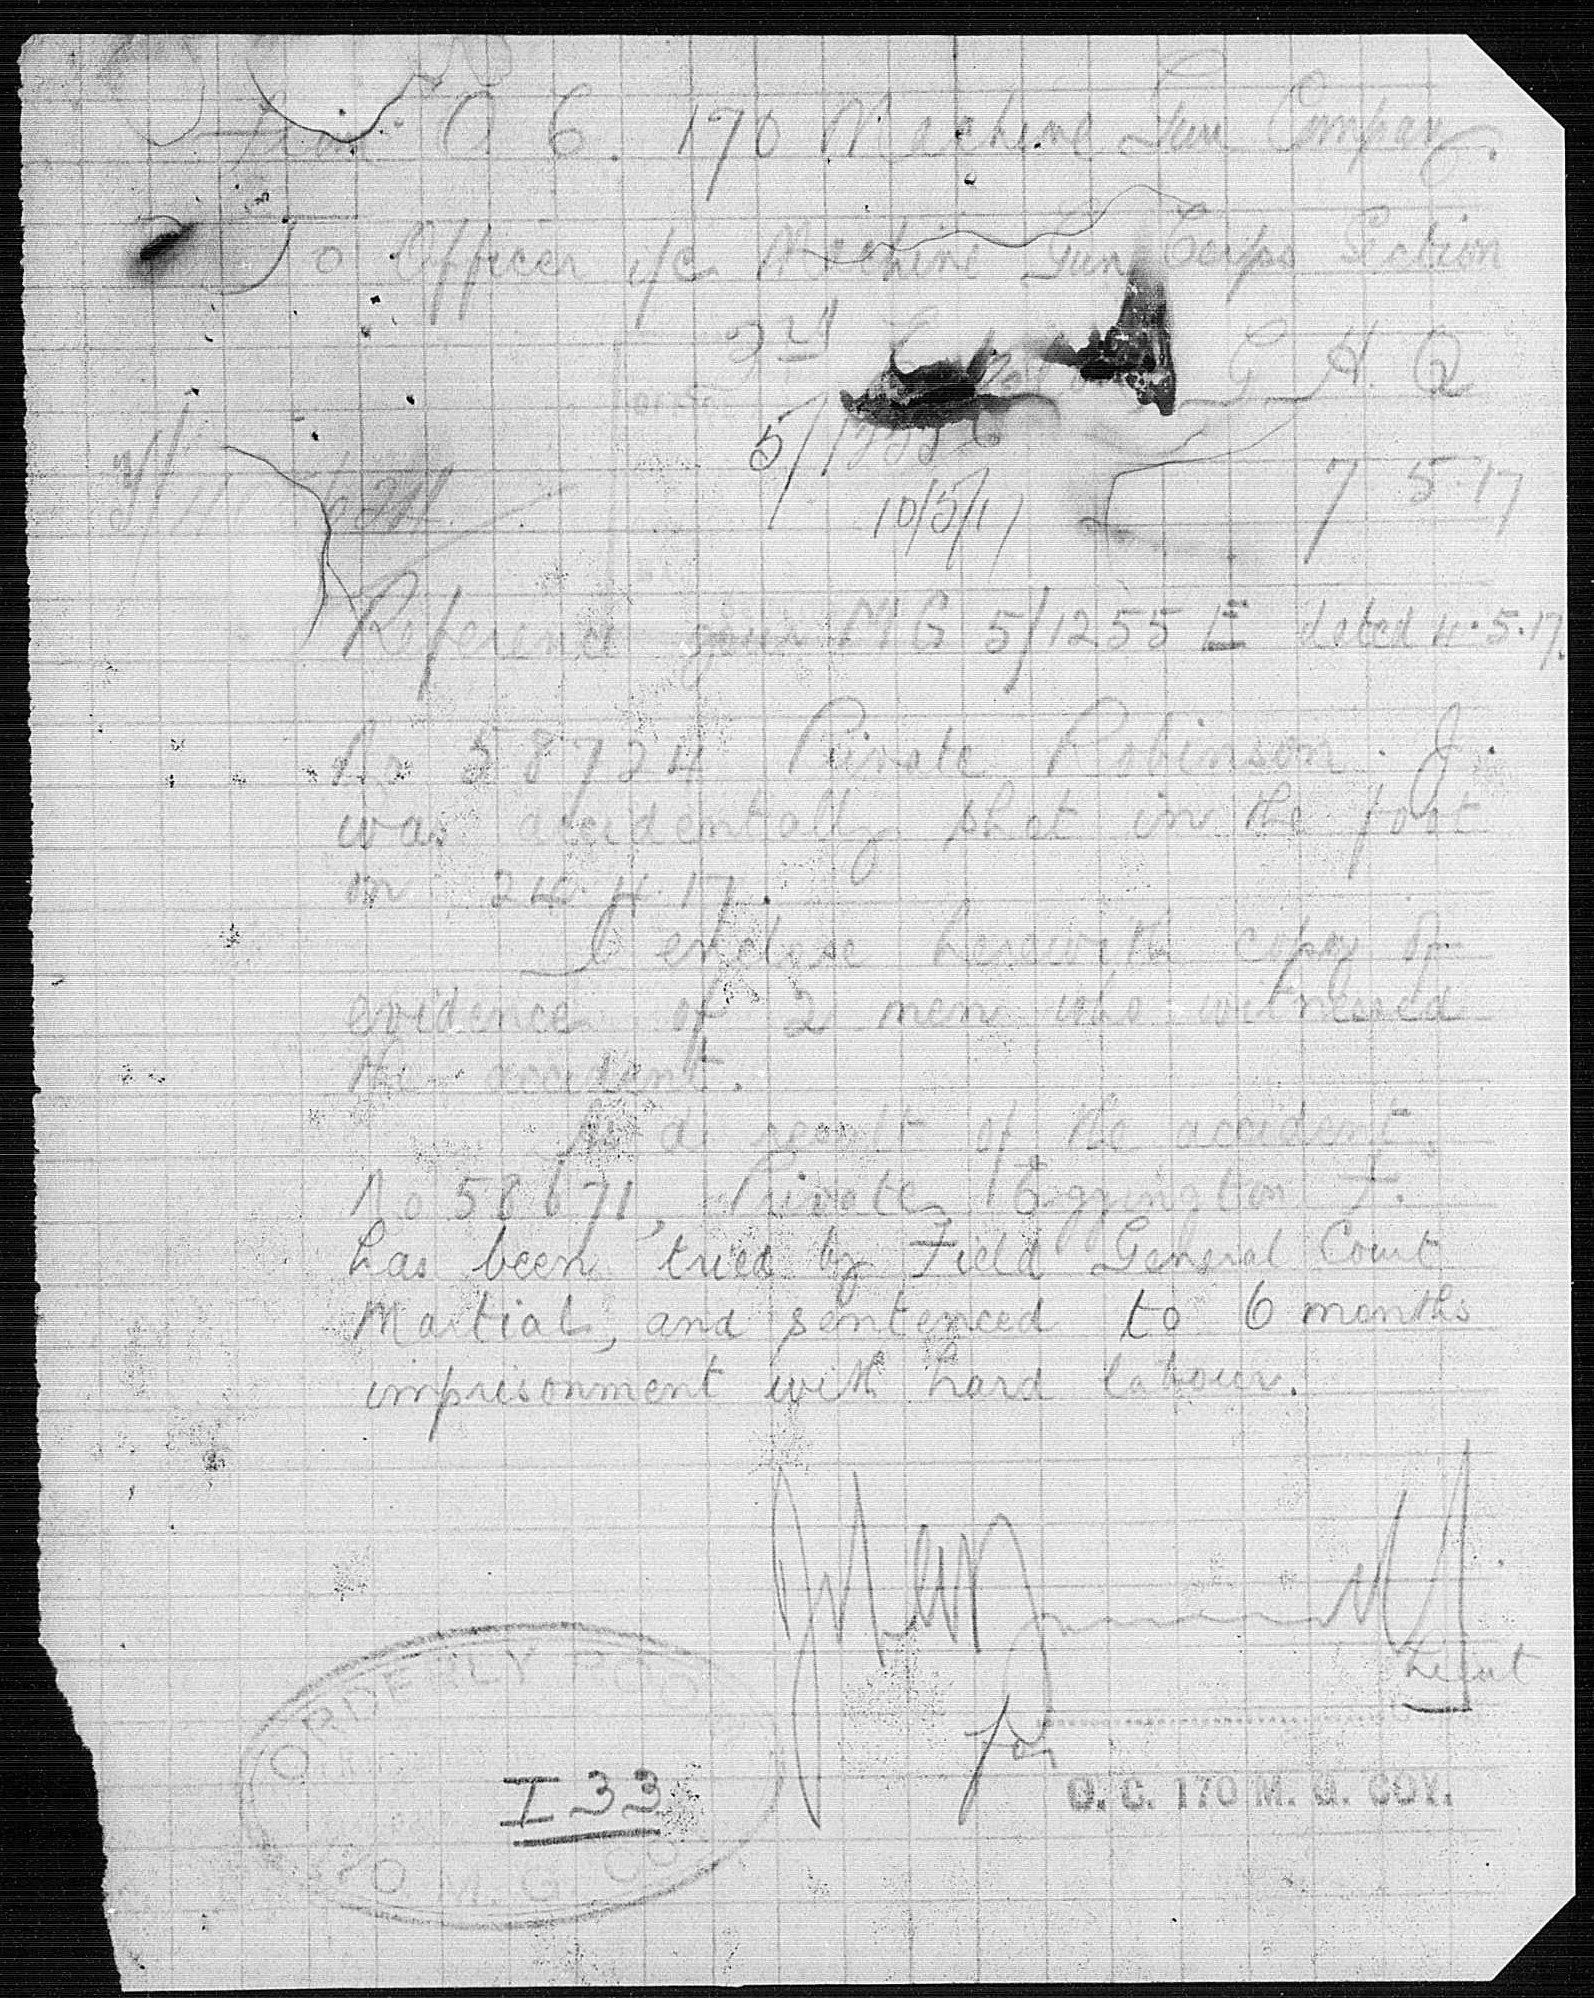 From O C. 170 Machine Gun Company.
o Officer i/c Machine Gun Corps Section
3rd E G H. Q
5/1255 E
10/5/17
7 5.17
Reference your MG 5/1255 E dated 4.5.17.
No 58724 Private Robinson. J.
was accidentally shot in the foot
on 24.4.17.
I enclose herewith copy of
evidence of 2 men who witnessed
the accident.
As a result of the accident,
No 58671, Private Eggington F.
has been tried by Field General Court
Martial, and sentenced to 6 months
imprisonment with hard labour.
Lieut
for
O. C. 170 M. G. COY.
ORDERLY ROO
I 33
170 M. G. CO